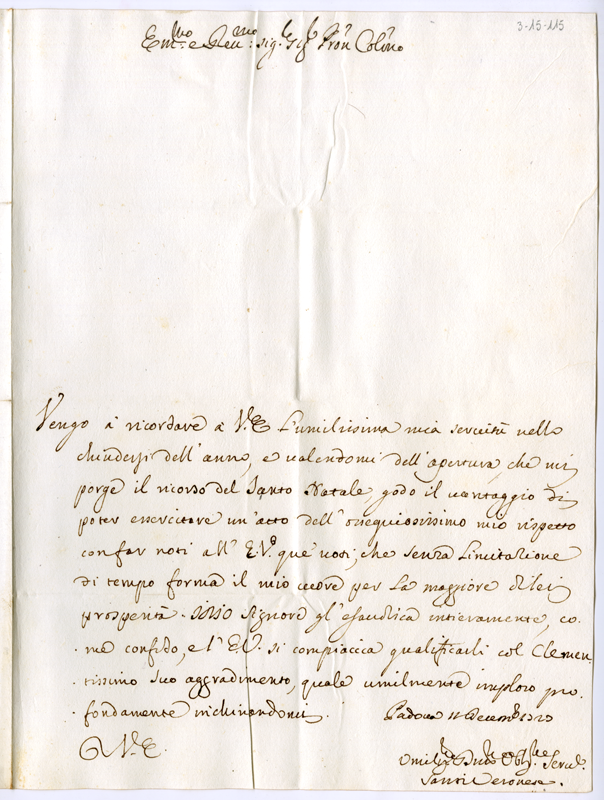 3-15-115
Em.mo e Rev.mo sig.r Sig.r Pron Col.mo
Vengo à ricordare à V.E. l'umilissima mia servitù nello
chiudersi dell'anno, e valendomi dell'apertura, che mi
porge il ricorso del Santo Natale, godo il vantaggio di
poter essercitare un'atto dell'ossequiosissimo mio rispetto
con far noti all'E.V. que' voti, che senza limitazione
di tempo forma il mio cuore per la maggiore di lei
prosperità. Iddio Signore gl'esaudisca intieramente, co-
me confido, e l'E.V. si compiaccia qualificarli col Clemen-
tissimo suo aggradimento, quale umilmente imploro pro-
fondamente inchinandomi. Padova 11 decemb.
V.E.
Umiliss. Devmo Obb. Serv.
Santi Veronese.